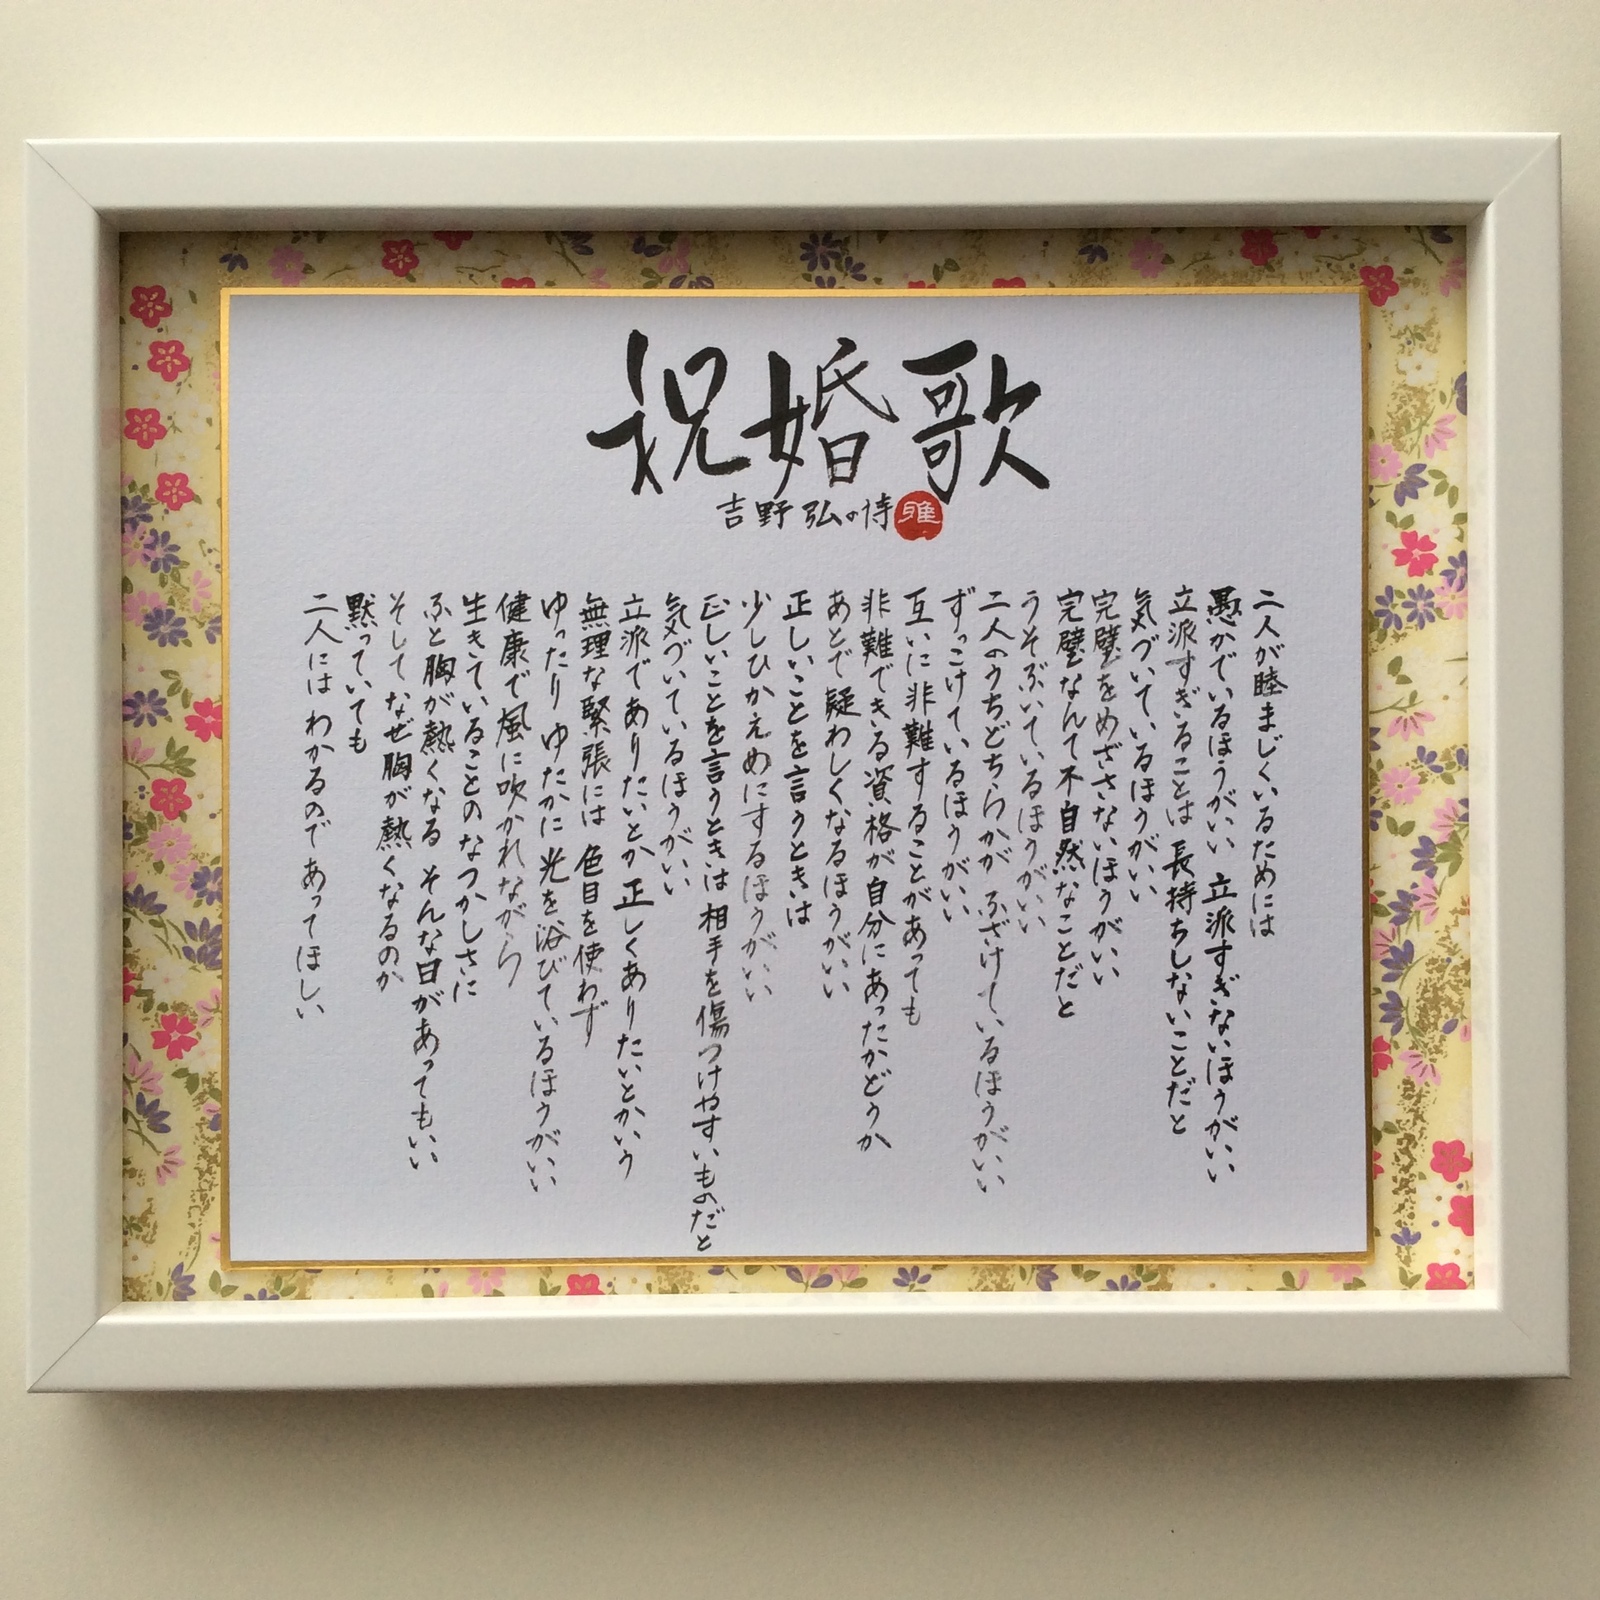 祝婚歌
吉野弘の詩
雅
二人が睦まじくいるためには
愚かでいるほうがいい 立派すぎないほうがいい
立派すぎることは 長持ちしないことだと
気づいているほうがいい
完璧をめざさないほうがいい
完璧なんて不自然なことだと
うそぶいているほうがいい
二人のうちどちらかが ふざけているほうがいい
ずっこけているほうがいい
互いに非難することがあっても
非難できる資格が自分にあったかどうか
あとで疑わしくなるほうがいい
正しいことを言うときは
少しひかえめにするほうがいい
正しいことを言うときは 相手を傷つけやすいものだと
気づいているほうがいい
立派でありたいとか 正しくありたいとかいう
無理な緊張には 色目を使わず
ゆったり ゆたかに 光を浴びているほうがいい
健康で風に吹かれながら
生きていることのなつかしさに
ふと胸が熱くなる そんな日があってもいい
そして なぜ胸が熱くなるのか
黙っていても
二人には わかるのであってほしい